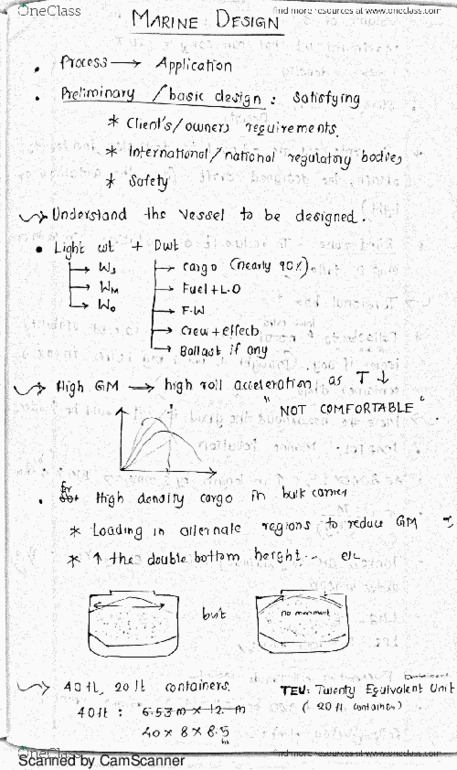 OneClass
find more resources at www.oneclass.com
MARINE DESIGN
• Process → Application
• Preliminary / basic design : satisfying
* Client's/owners requirements.
* International/national regulatory bodies
* Safety
Understand the vessel to be designed.
• Light wt + Dwt
→ Ws → cargo (nearly 90%)
→ WM → Fuel + L.O
→ Wo → F.W
→ Crew + effects
→ Ballast if any
High GM → high roll acceleration as T ↓
"NOT COMFORTABLE"
• for High density cargo in bulk carrier
* Loading in alternate regions to reduce GM
* ↑ the double bottom height... etc
but
no movement
40 ft, 20 ft containers.
TEU: Twenty Equivalent Unit
40ft : 6.53 m x 12. m
(20 ft container)
40 x 8 x 8.5
OneClass
find more resources at www.oneclass.com
Scanned by CamScanner